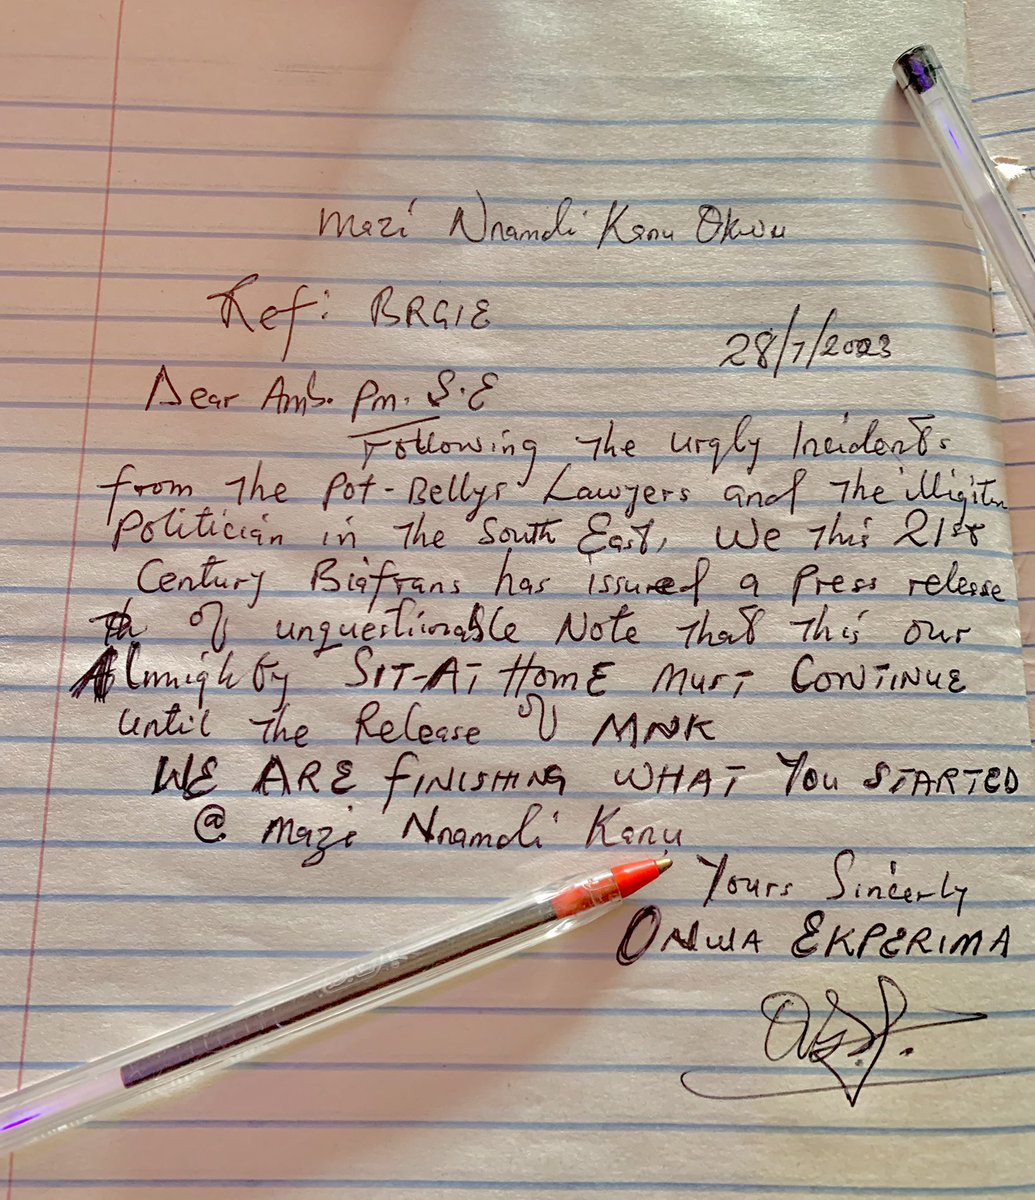 Mazi Nnamdi Kanu Okwu
Ref: BRGIE
28/7/2023
Dear Amb. Pm. S.E
Following the urgly Incidents
from the Pot-Bellys Lawyers and the
Politician in the South East, We this 21st
Century Biafrans has issued a press release
of unquestionable Note that this our
Almighty SIT-AT HOME MUST CONTINUE
until the Release of MNK
WE ARE FINISHING WHAT YOU STARTED
@ Mazi Nnamdi Kanu
Yours Sincerly
ONWA EKPERIMA